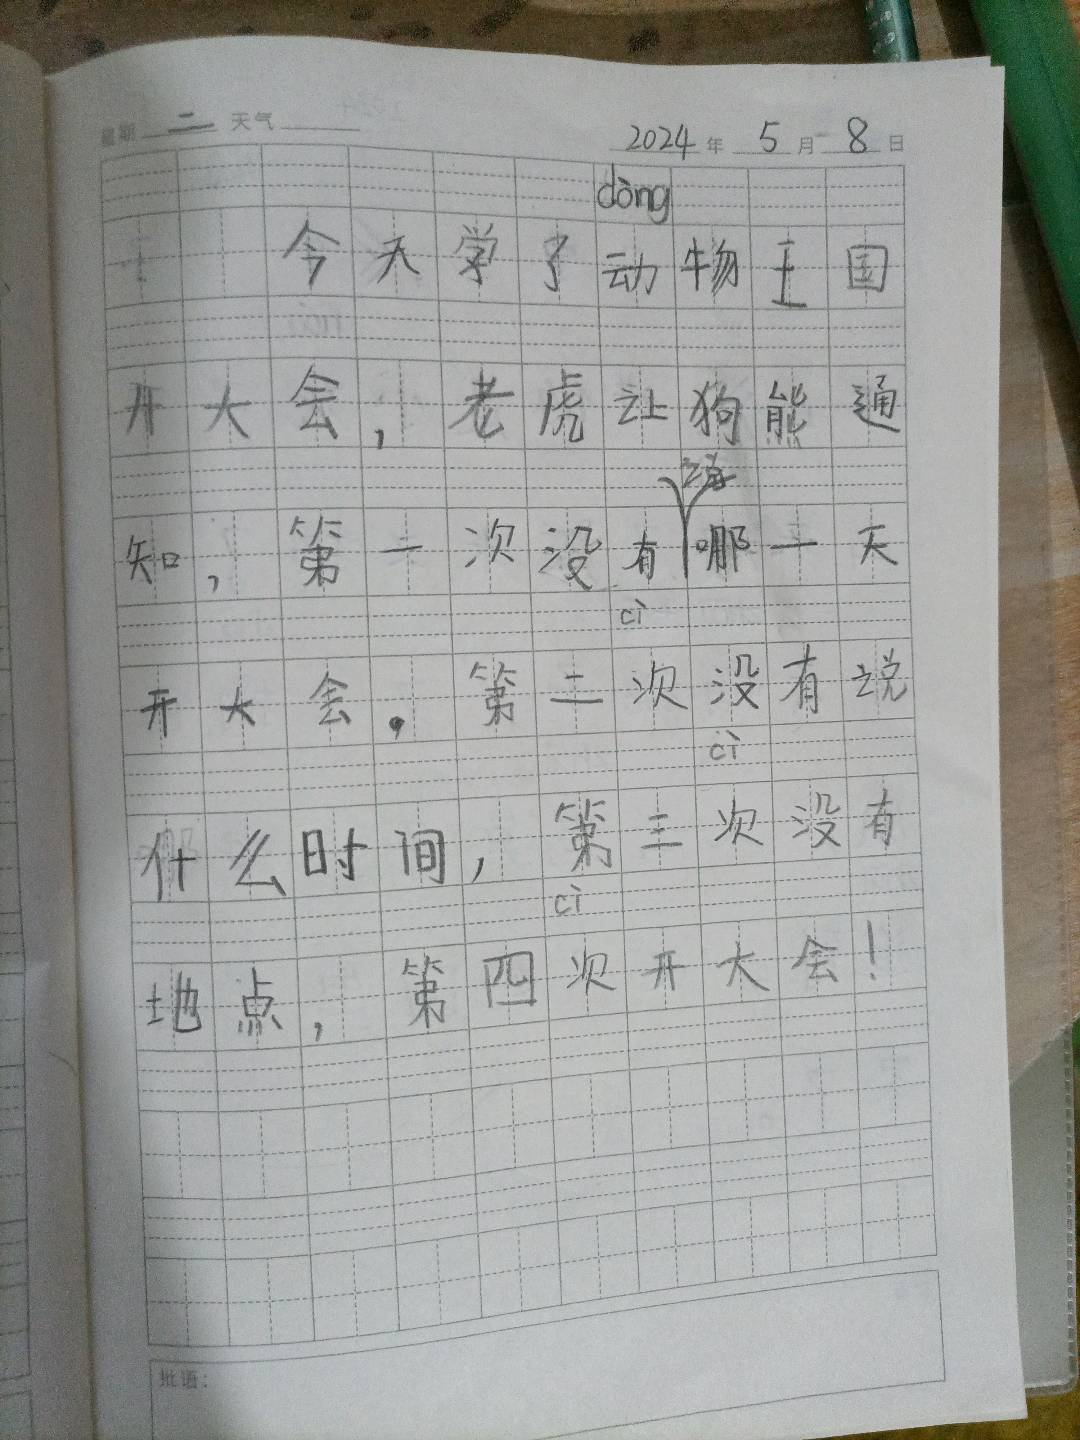 星期 二 天气
2024 年 5 月 8 日
dòng
今天学了动物王国
开大会,老虎让狗熊通
说
知,第一次没有哪一天
cì
开大会。第二次没有说
cì
什么时间,第三次没有
cì
地点,第四次开大会!
批语: